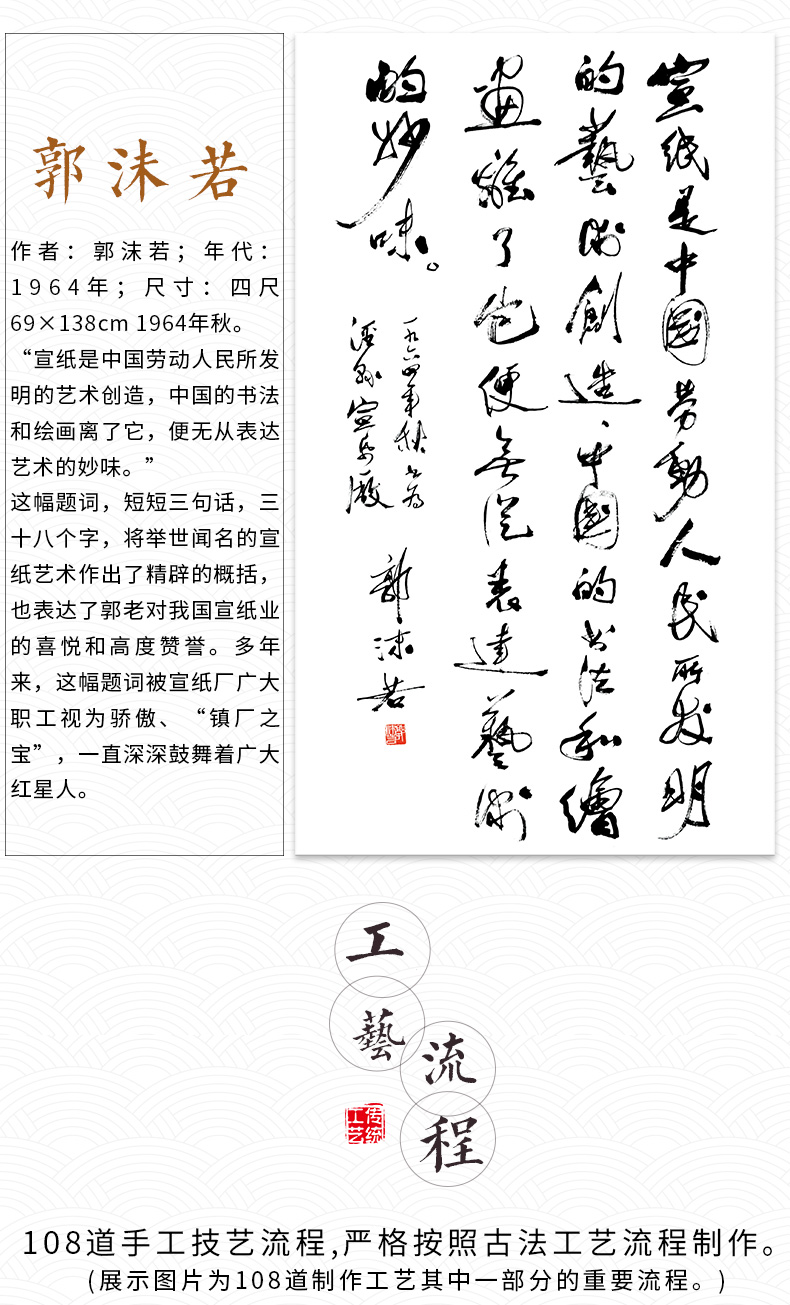 郭沫若
作者：郭沫若；年代：
1964年；尺寸：四尺
69×138cm 1964年秋。
“宣纸是中国劳动人民所发
明的艺术创造，中国的书法
和绘画离了它，便无从表达
艺术的妙味。”
这幅题词，短短三句话，三
十八个字，将举世闻名的宣
纸艺术作出了精辟的概括，
也表达了郭老对我国宣纸业
的喜悦和高度赞誉。多年
来，这幅题词被宣纸厂广大
职工视为骄傲、“镇厂之
宝”，一直深深鼓舞着广大
红星人。
宣纸是中国劳動人民所发明
的藝術創造、中国的书法和繪
画離了他便無从表達藝術
的妙味。
一九六四年秋书为
泾县宣纸厰
郭沫若
工藝流程
传统工艺
108道手工技艺流程,严格按照古法工艺流程制作。
(展示图片为108道制作工艺其中一部分的重要流程。)